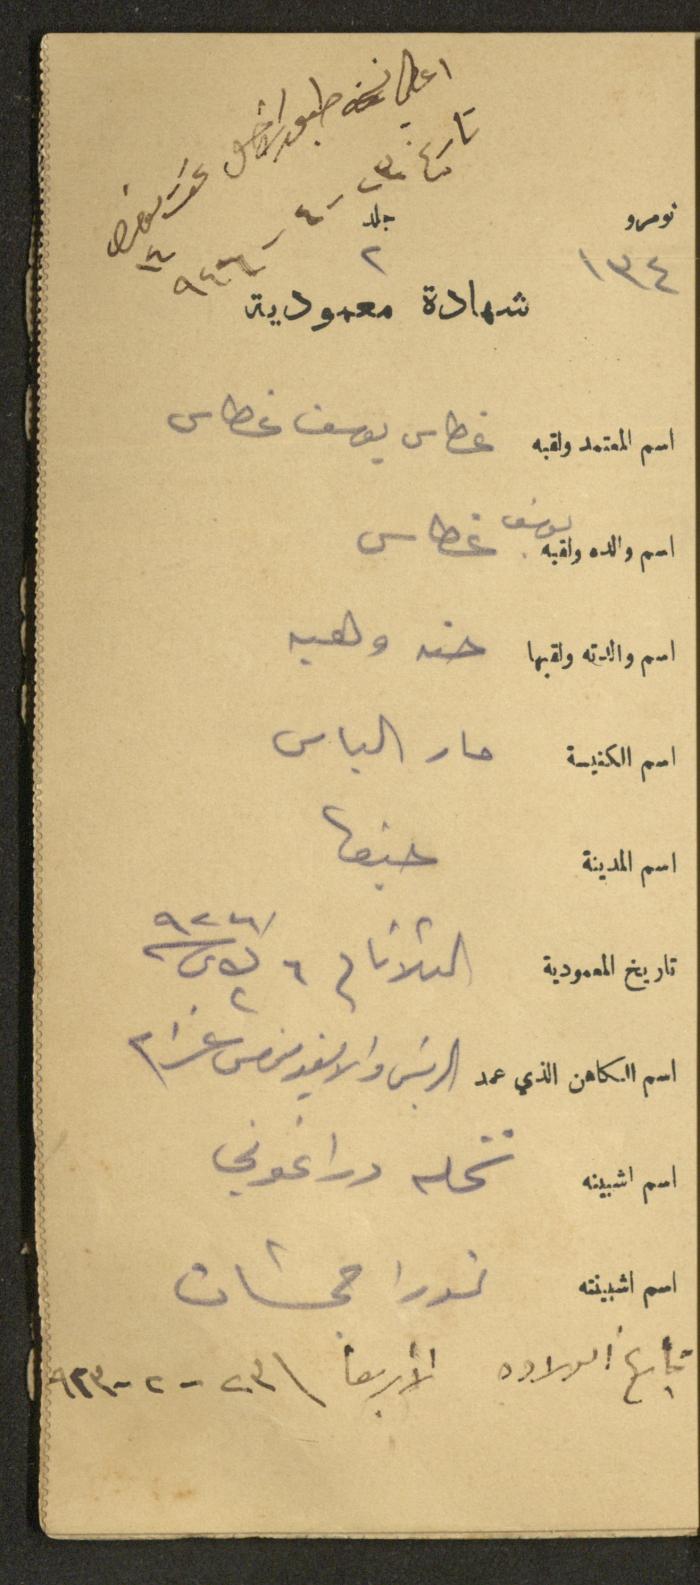 اعطي نسخة طبق الاصل
تاريخ ٢٣ - ٤ - ٩٤٦
نومرو جلد
١٣٤ ٢
شهادة معمودية
اسم المعتمد ولقبه غطاس يوسف غطاس
اسم والده ولقبه يوسف غطاس
اسم والدته ولقبها حنه وهبه
اسم الكنيسة مار الياس
اسم المدينة حيفا
تاريخ المعمودية الثلاثاء ٦ ٩٢٦
اسم الكاهن الذي عمد
اسم اشبينه نخله دراغوني
اسم اشبينته
تاريخ الولاده الأربعا ٢٣ - ٢ - ٩٢٣